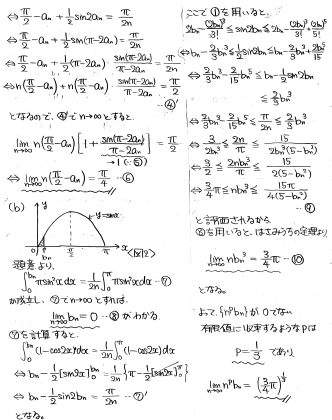 π/2 - aₙ + 1/2 sin2aₙ = π/2n
⇔ π/2 - aₙ + 1/2 sin(π-2aₙ) = π/2n
⇔ π/2 - aₙ + (π/2 - aₙ)・sin(π-2aₙ)/(π-2aₙ) = π/2n
⇔ n(π/2 - aₙ) + n(π/2 - aₙ)・sin(π-2aₙ)/(π-2aₙ) = π/2
…④'
となるので、④'でn→∞とすると、
lim[n→∞] n(π/2 - aₙ)[1 + sin(π-2aₙ)/(π-2aₙ)] = π/2
→1 (∵⑤)
⇔ lim[n→∞] n(π/2 - aₙ) = π/4 …⑥
(b)
y
y=sinx
bₙ π/2 π x
<図2>
題意より、
∫₀^bₙ πsin²xdx = 1/2n ∫₀^π πsin²xdx …⑦
が成立し、⑦でn→∞とすれば、
lim[n→∞] bₙ = 0 …⑧がわかる。
⑦を計算すると、
∫₀^bₙ (1-cos2x)dx = 1/2n ∫₀^π (1-cos2x)dx
⇔ bₙ - 1/2[sin2x]₀^bₙ = 1/2n{π - 1/2[sin2x]₀^π}
⇔ bₙ - 1/2 sin2bₙ = π/2n …⑦'
となる。
ここで①を用いると、
2bₙ - (2bₙ)³/3! ≦ sin2bₙ ≦ 2bₙ - (2bₙ)³/3! + (2bₙ)⁵/5!
⇔ bₙ - 2/3 bₙ³ ≦ 1/2 sin2bₙ ≦ bₙ - 2/3 bₙ³ + 2/15 bₙ⁵
⇔ 2/3 bₙ³ - 2/15 bₙ⁵ ≦ bₙ - 1/2 sin2bₙ
≦ 2/3 bₙ³
⇔ 2/3 bₙ³ - 2/15 bₙ⁵ ≦ π/2n ≦ 2/3 bₙ³
⇔ 3/2bₙ³ ≦ 2n/π ≦ 15/2bₙ³(5-bₙ²)
⇔ 3/2 ≦ 2nbₙ³/π ≦ 15/2(5-bₙ²)
⇔ 3/4 π ≦ nbₙ³ ≦ 15π/4(5-bₙ²)
…⑨
と評価されるから
⑧を用いると、はさみうちの定理より
lim[n→∞] nbₙ³ = 3/4 π …⑩
となる。
よって、{nᵖbₙ}が0でない
有限値に収束するようなpは
p = 1/3 であり
lim[n→∞] nᵖbₙ = (3/4 π)^(1/3)